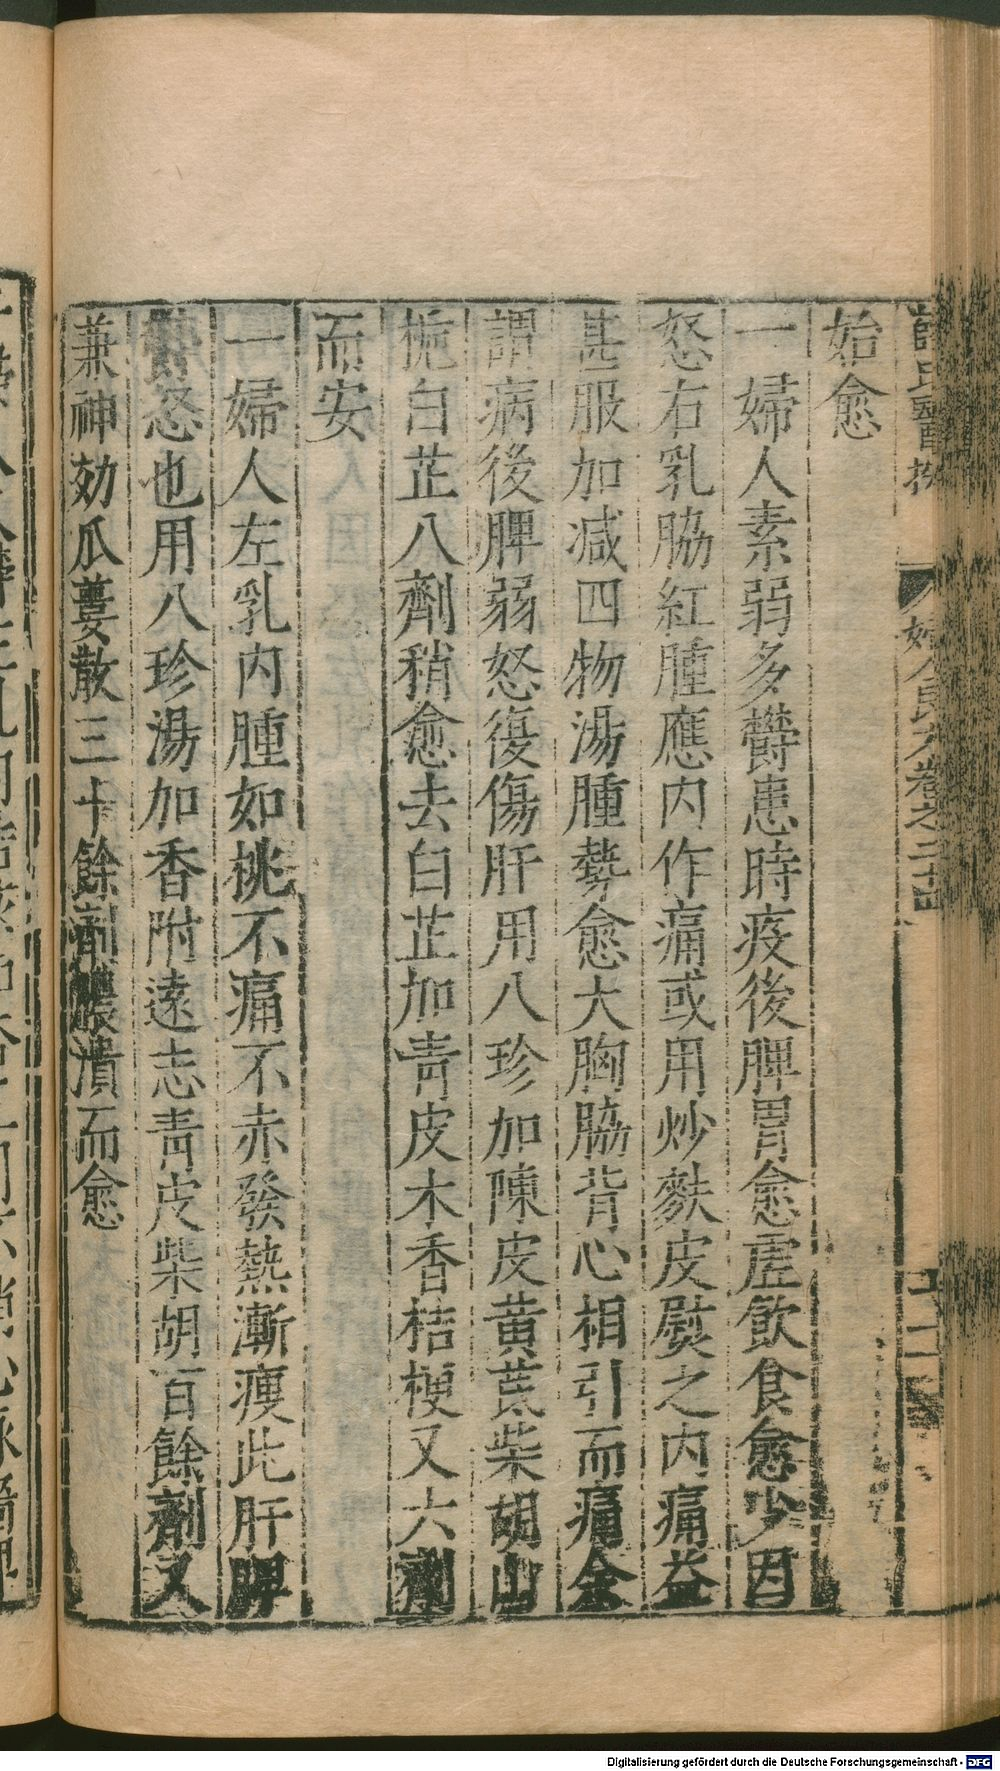 薛氏醫按 婦人良方卷之二十四
始愈
一婦人素弱多欝患時疫後脾胃愈虛飲食愈少因
怒右乳脇紅腫應內作痛或用炒麩皮熨之內痛益
甚服加減四物湯腫勢愈大胸脇背心相引而痛余
謂病後脾弱怒復傷肝用八珍加陳皮黃芪柴胡山
梔白芷八劑稍愈去白芷加青皮木香桔梗又六劑
而安
一婦人左乳內腫如桃不痛不赤發熱漸瘦此肝脾
鬱怒也用八珍湯加香附遠志青皮柴胡百餘劑又
兼神効瓜蔞散三十餘劑膿潰而愈
Digitalisierung gefördert durch die Deutsche Forschungsgemeinschaft - DFG